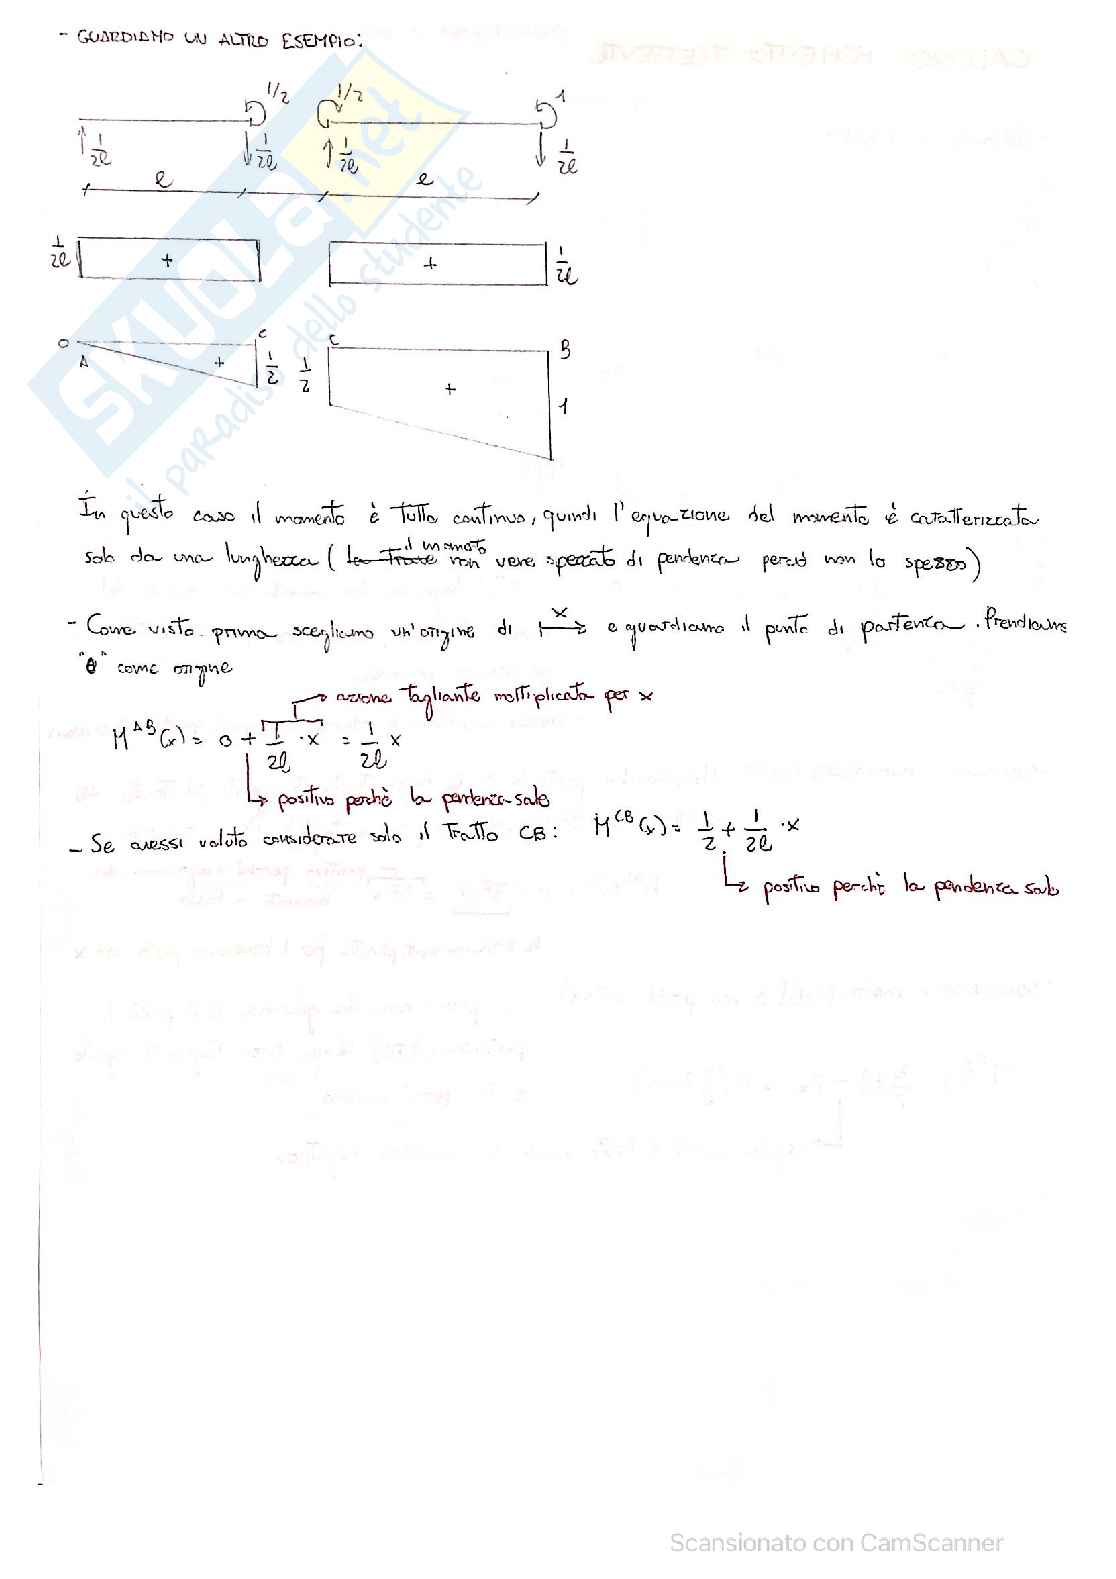 - GUARDIAMO UN ALTRO ESEMPIO:
1/2 1/2 1
1/2l 1/2l 1/2l 1/2l
l l
1/2l + + 1/2l
0 A + C 1/2 1/2 C + B 1
In questo caso il momento è tutto continuo, quindi l'equazione del momento è caratterizzata
solo da una lunghezza ( il momento non viene spezzato di pendenza perciò non lo spezzo)
- Come visto prima scegliamo un'origine di x e guardiamo il punto di partenza. Prendiamo
"0" come origine
azione tagliante moltiplicata per x
M^AB(x) = 0 + 1/2l · x = 1/2l x
positivo perchè la pendenza sale
- Se avessi voluto considerare solo il tratto CB: M^CB(x) = 1/2 + 1/2l · x
positivo perchè la pendenza sale
SKUOLA.net
il paradiso dello studente
Scansionato con CamScanner